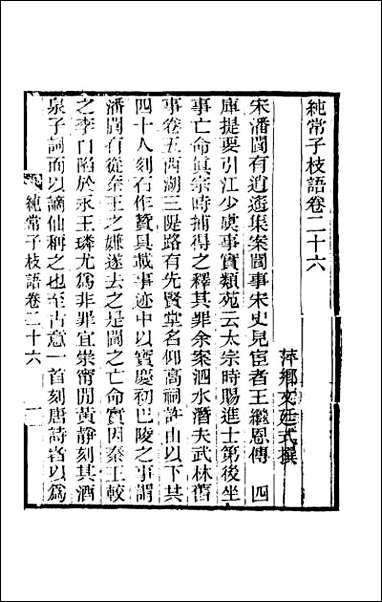 純常子枝語卷二十六
萍鄉文廷式撰
宋潘閬有逍遙集案閬事宋史見宦者王繼恩傳　四
庫提要引江少虞事實類苑云太宗時賜進士第後坐
事亡命真宗時捕得之釋其罪余案泗水潛夫武林舊
事卷五西湖三隄路有先賢堂名仰高祠許由以下共
四十人刻石作贊具載事迹中以寶慶初巴陵之事謂
潘閬有從秦王之嫌遂去之是閬之亡命實因秦王較
之李白陷於永王璘尤為非罪宜崇甯閒黄靜刻其酒
泉子詞而以謫仙稱之也至古意一首刻唐詩者以為
純常子枝語卷二十六　一